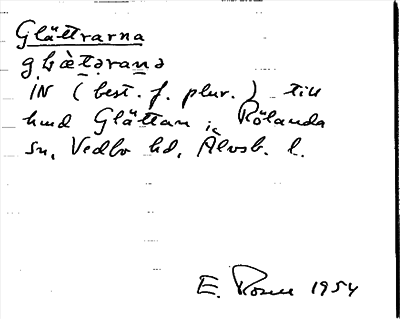 Glättrarna
g,læ̀t̲əran̲ə
IN (best. f. plur.) till
hmd Glättan i Rölanda
sn, Vedbo hd, Älvsb. l.
E. Rosen 1954